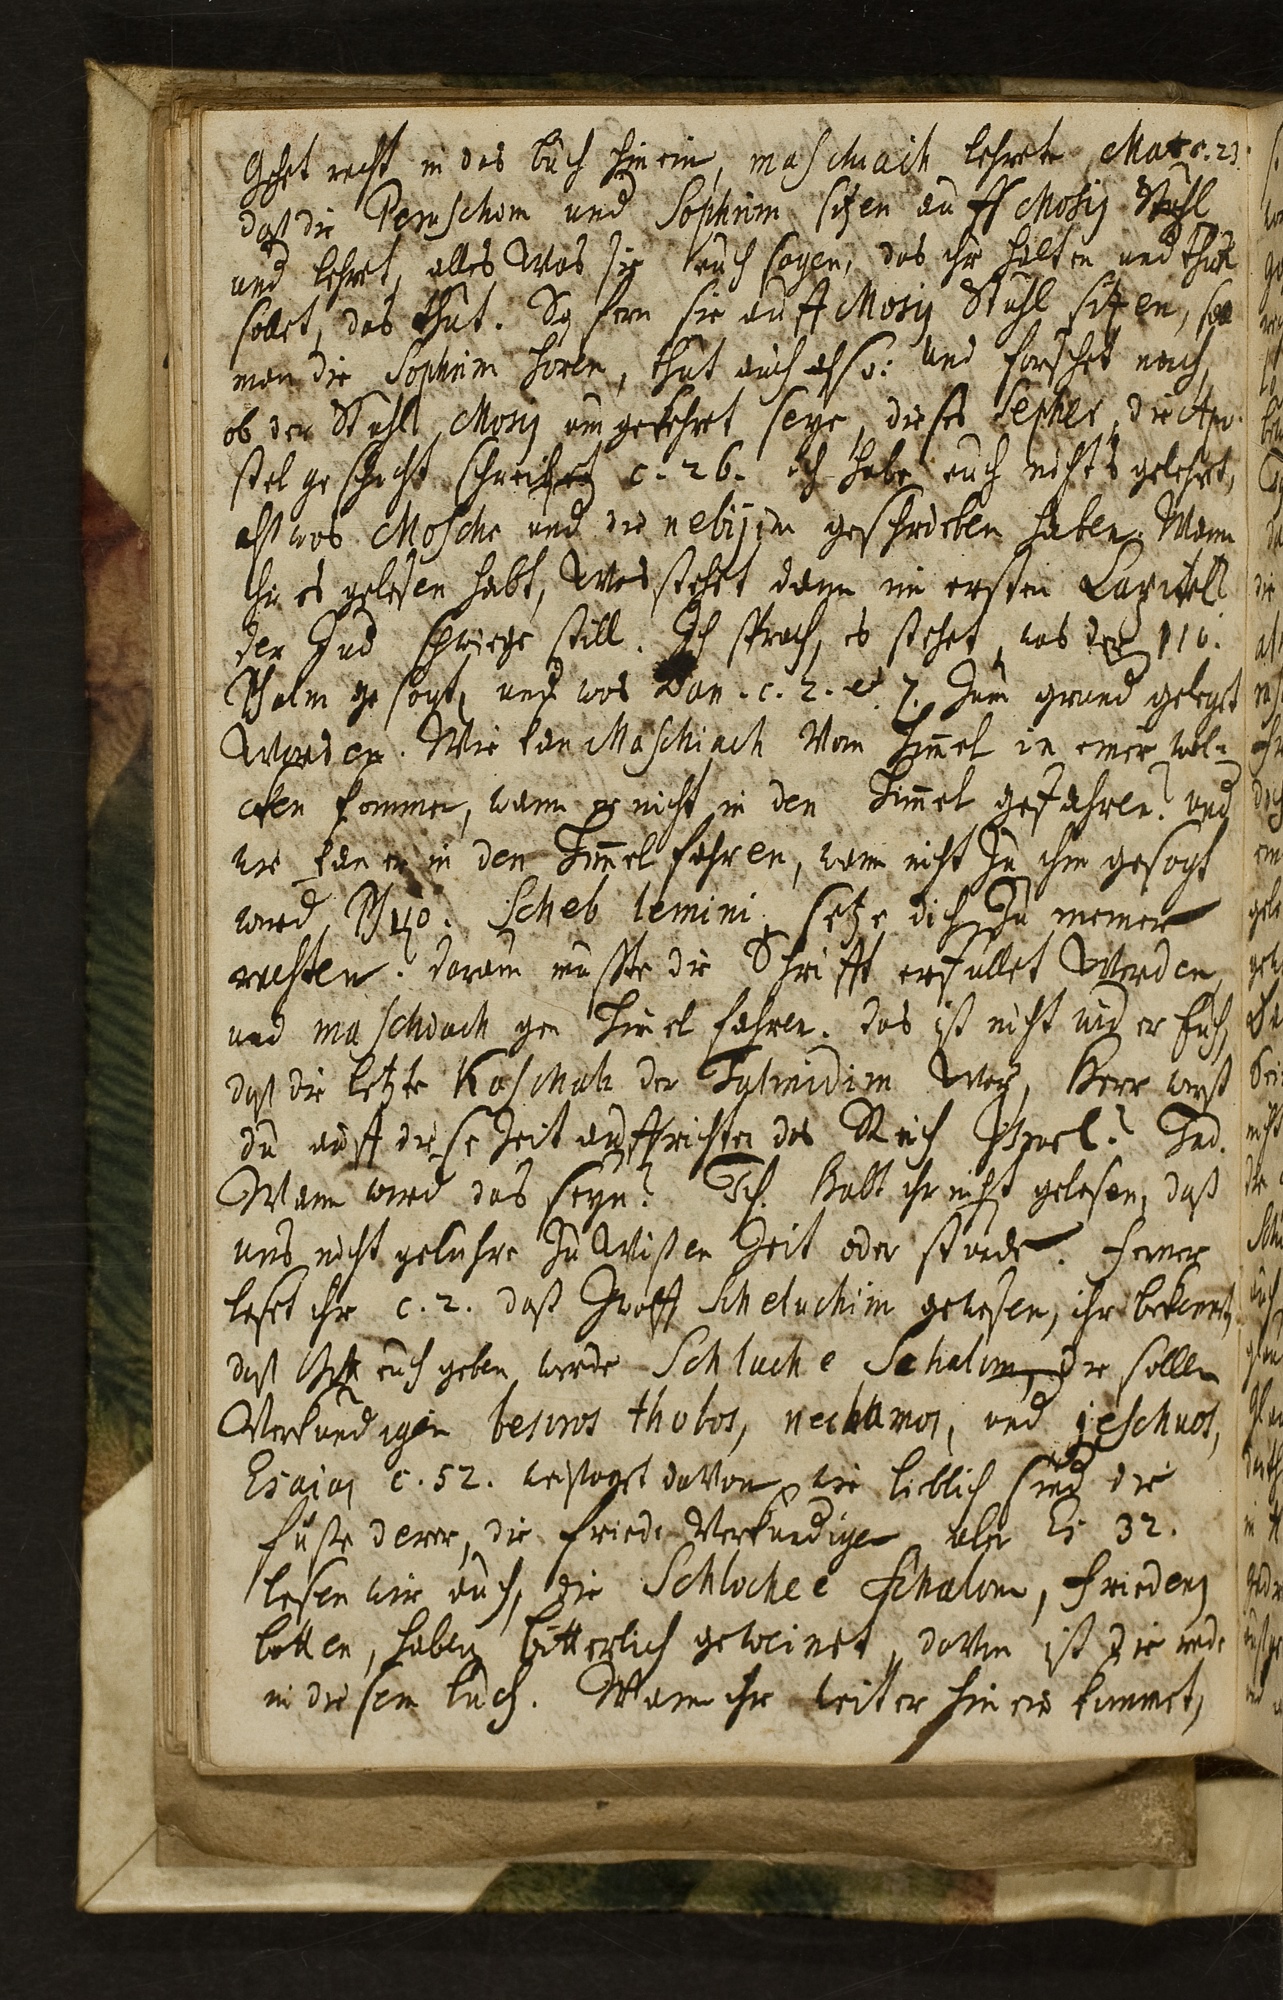 Gehet recht in das buch hinein, maschiach lehrete Mat. c. 23.
daß die Peruschim und Sophrim sitzen auff Mosis Stuhl
und lehret, alles was sie euch sagen, das ihr halten und thun
sollet, das thut. So fern sie auff Mosis Stuhl sitzen, soll
man die Sophrim hören, thut auch also: und forschet nach,
ob der Stuhl Mosis umgekehret seye, dieses Sepher, die Apo-
stel geschicht schreibet c. 26. ich habe euch nichts gelehret,
alß was Mosche und die nebijim geschrieben haben. Wann
ihr es gelesen habt, was stehet dann im ersten Capitell
der Jud schwiege still. Ich sprach, es stehet, was der 110.
Psalm gesagt, und was Dan. c. 2. et 7. zum grund geleget
worden. Wie kan Maschiach vom himmel in einer wol-
cken kommen, wann er nicht in den himmel gefahren? und
wie kan er in den himmel fahren, wann nicht zu ihm gesagt
wird Ps 110. Scheb lemini, setze dich zu meiner
rechten? darum muste die Schrifft erfüllet werden,
und maschiach gen himel fahren. das ist nicht
daß die letzte Kaschah der Talmidim war, Herr wirst
du auff diese Zeit auffrichten das Reich Israel? Jud.
Wann wird das seyn? Ich. Habt ihr nicht gelesen, daß
uns nicht gebühre zu wißen Zeit oder stunde. Ferner
leset ihr c. 2. daß Zwölff Scheluchim gewesen, ihr bekennet,
daß Gott euch geben werde Schluche Schalom, die sollen
verkündigen besoros thobos, nechamos, und jeschuos,
Esaias c. 52. weissaget davon, wie lieblich sind die
füße derer, die friede verkündigen aber Es 32.
lesen wir auch, die Schlochee Schalom, friedens
botten, haben bitterlich geweinet, davon ist die rede
in diesem buch. Wann ihr weiter hinein kommet,